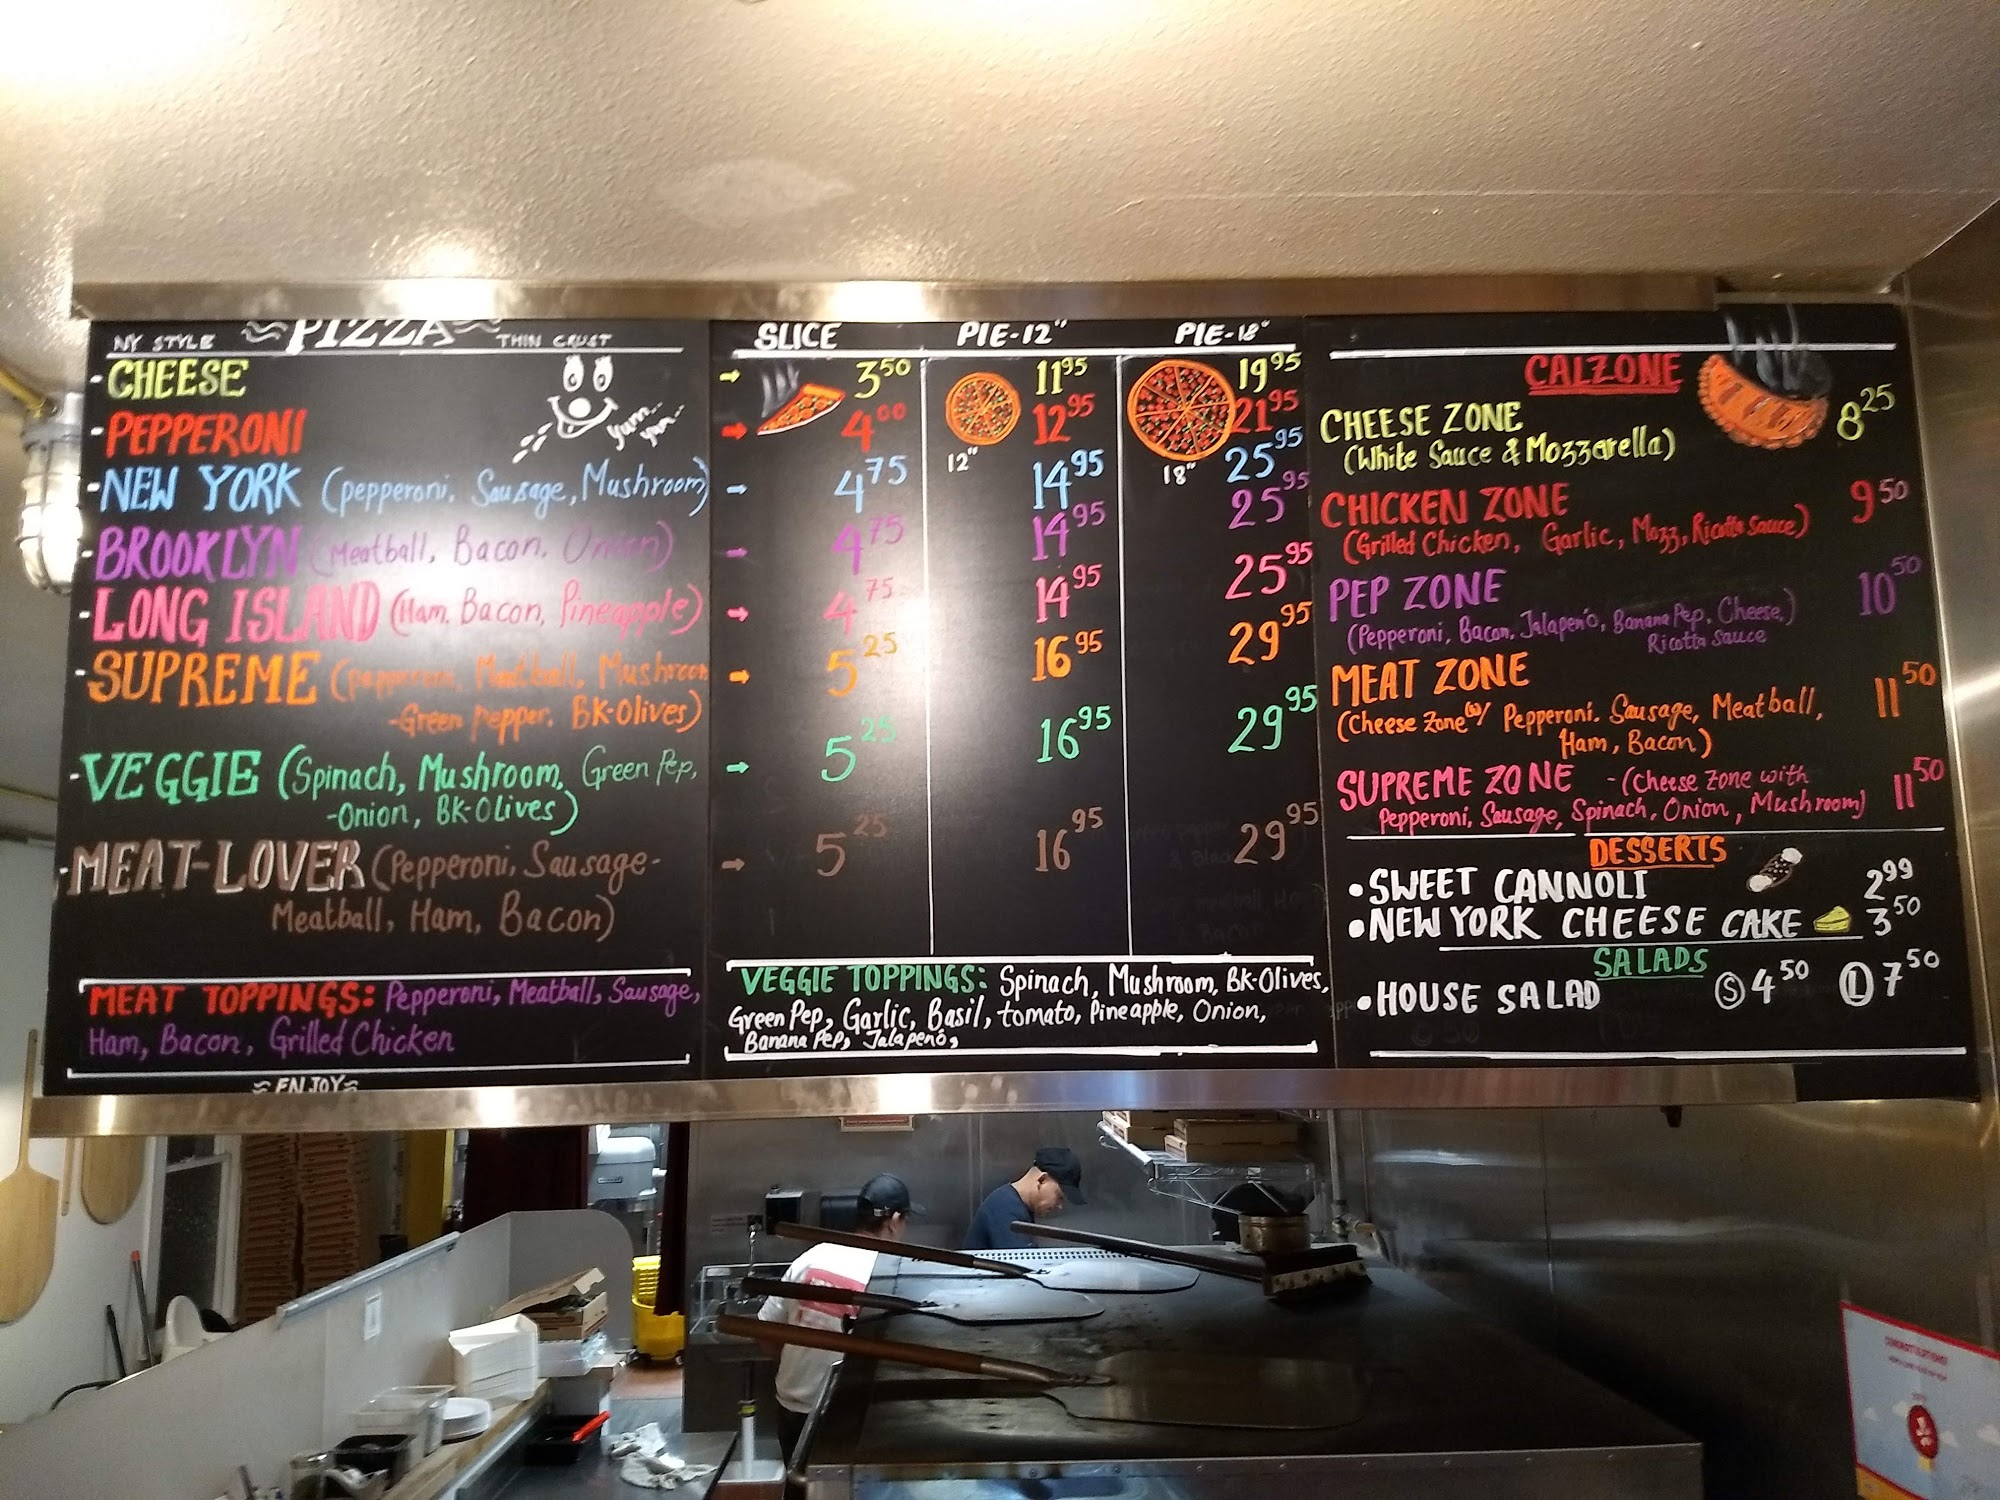 NY STYLE ~PIZZA~ THIN CRUST
- CHEESE
- PEPPERONI
yum... yum...
- NEW YORK (pepperoni, Sausage, Mushroom)
- BROOKLYN (Meatball, Bacon, Onion)
- LONG ISLAND (Ham, Bacon, Pineapple)
- SUPREME (pepperoni, Meatball, Mushroom
- Green Pepper, BK-Olives)
- VEGGIE (Spinach, Mushroom, Green Pep,
- Onion, BK-Olives)
- MEAT-LOVER (Pepperoni, Sausage-
Meatball, Ham, Bacon)
MEAT TOPPINGS: Pepperoni, Meatball, Sausage,
Ham, Bacon, Grilled Chicken
~ENJOY~
SLICE PIE-12" PIE-18"
→ 3 50 11 95 19 95
→ 4 00 12 95 21 95
12" 18"
→ 4 75 14 95 25 95
→ 4 75 14 95 25 95
→ 4 75 14 95 25 95
→ 5 25 16 95 29 95
→ 5 25 16 95 29 95
→ 5 25 16 95 29 95
VEGGIE TOPPINGS: Spinach, Mushroom, BK-Olives,
Green Pep, Garlic, Basil, tomato, Pineapple, Onion,
Banana Pep, Jalapenó,
CALZONE
CHEESE ZONE 8 25
(White Sauce & Mozzarella)
CHICKEN ZONE 9 50
(Grilled Chicken, Garlic, Mozz, Ricotta Sauce)
PEP ZONE 10 50
(Pepperoni, Bacon, Jalapenó, Banana Pep, Cheese,)
Ricotta Sauce
MEAT ZONE 11 50
(Cheese Zone W/ Pepperoni, Sausage, Meatball,
Ham, Bacon)
SUPREME ZONE - (Cheese Zone with 11 50
Pepperoni, Sausage, Spinach, Onion, Mushroom)
DESSERTS
• SWEET CANNOLI 2 99
• NEW YORK CHEESE CAKE 3 50
SALADS
• HOUSE SALAD S 4 50 L 7 50